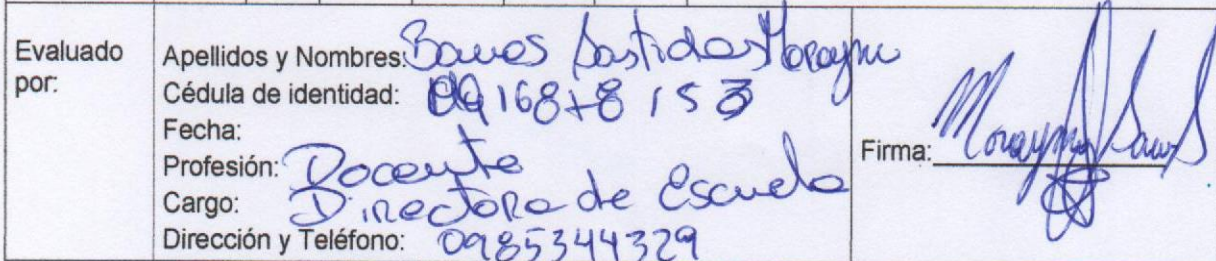 Evaluado por:
Apellidos y Nombres: Bastidas Morayma
Cédula de identidad:
Fecha:
Profesión: Docente
Cargo: Directora de Escuela
Dirección y Teléfono: 0985344329
Firma: